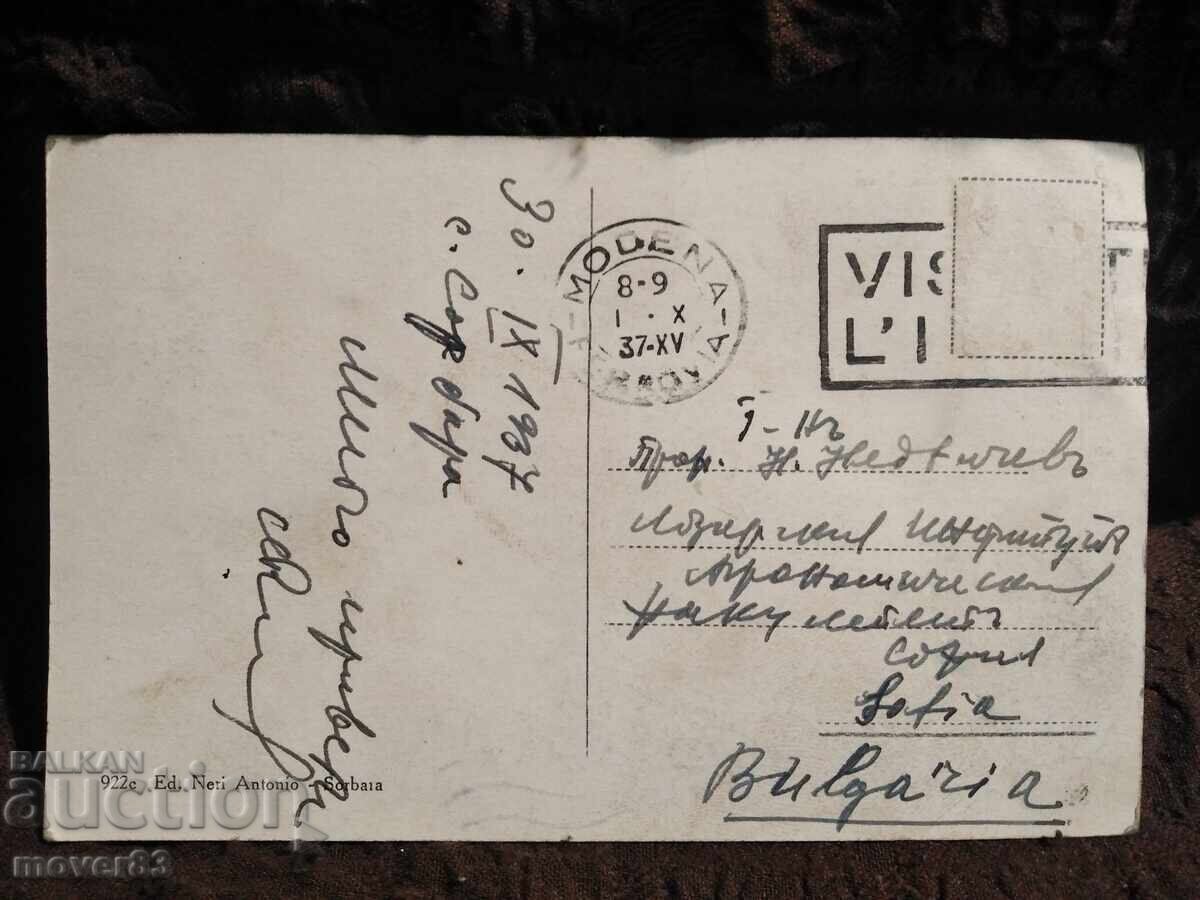 30. IX 1937
с. Сорбара
Много привети
MODENA
FERROVIA
8-9
1 · X
37-XV
VIS T
L'I
Г-нъ
Проф. Н. Недѣлчевъ
Лозарския Институтъ
Агрономически
факултетъ
София
Sofia
Bulgaria
922c Ed. Neri Antonio - Sorbara
BALKAN
auction
mover83